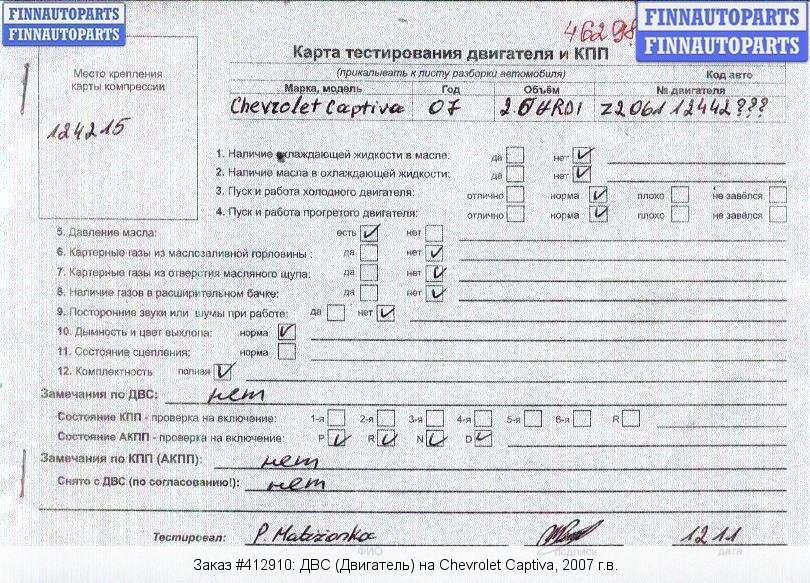 FINNAUTOPARTS
FINNAUTOPARTS
FINNAUTOPARTS
FINNAUTOPARTS
46298
Карта тестирования двигателя и КПП
(прикалывать к листу разборки автомобиля)
Код авто
Место крепления
карты компрессии
124215
Марка, модель Год Объём № двигателя
Chevrolet Captiva 07 2.0 VRDI Z20611 12442???
1. Наличие охлаждающей жидкости в масле: да нет ✓
2. Наличие масла в охлаждающей жидкости: да нет ✓
3. Пуск и работа холодного двигателя: отлично норма ✓ плохо не завёлся
4. Пуск и работа прогретого двигателя: отлично норма ✓ плохо не завёлся
5. Давление масла: есть ✓ нет
6. Картерные газы из маслозаливной горловины : да нет ✓
7. Картерные газы из отверстия масляного щупа: да нет ✓
8. Наличие газов в расширительном бачке: да нет ✓
9. Посторонние звуки или шумы при работе: да нет ✓
10. Дымность и цвет выхлопа: норма ✓
11. Состояние сцепления: норма
12. Комплектность полная ✓
Замечания по ДВС: нет
Состояние КПП - проверка на включение: 1-я 2-я 3-я 4-я 5-я 6-я R
Состояние АКПП - проверка на включение: P ✓ R ✓ N ✓ D ✓
Замечания по КПП (АКПП): нет
Снято с ДВС (по согласованию!): нет
Тестировал: 1211
ФИО подпись дата
Заказ #412910: ДВС (Двигатель) на Chevrolet Captiva, 2007 г.в.